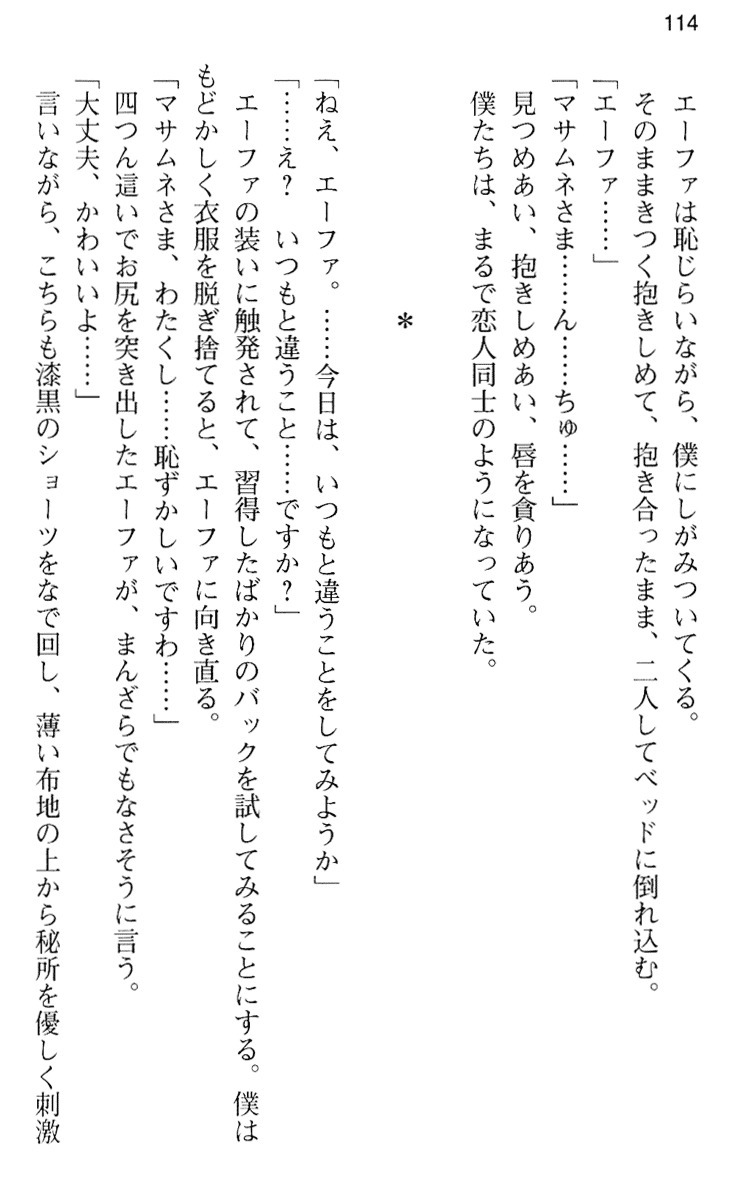 114
エーファは恥じらいながら、僕にしがみついてくる。
そのままきつく抱きしめて、抱き合ったまま、二人してベッドに倒れ込む。
「エーファ……」
「マサムネさま……ん……ちゅ……」
見つめあい、抱きしめあい、唇を貪りあう。
僕たちは、まるで恋人同士のようになっていた。
＊
「ねえ、エーファ。……今日は、いつもと違うことをしてみようか」
「……え？　いつもと違うこと……ですか？」
エーファの装いに触発されて、習得したばかりのバックを試してみることにする。僕は
もどかしく衣服を脱ぎ捨てると、エーファに向き直る。
「マサムネさま、わたくし……恥ずかしいですわ……」
四つん這いでお尻を突き出したエーファが、まんざらでもなさそうに言う。
「大丈夫、かわいいよ……」
言いながら、こちらも漆黒のショーツをなで回し、薄い布地の上から秘所を優しく刺激